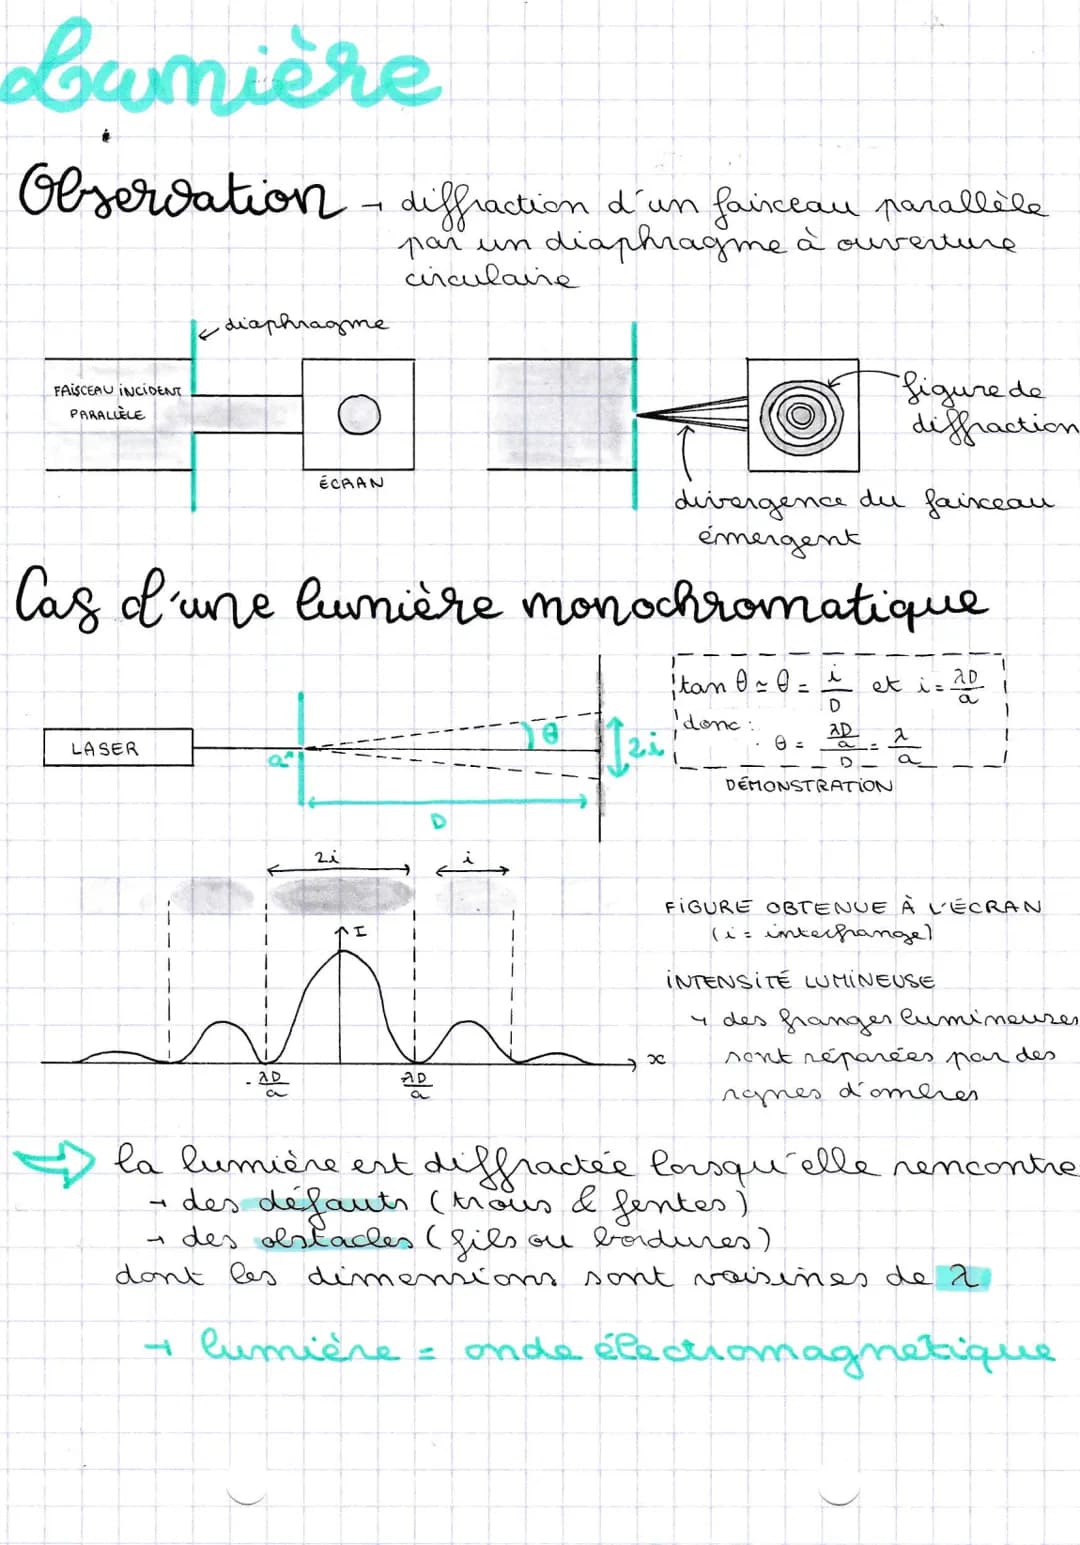 Lumière
Observation → diffraction d'un faisceau parallèle
par un diaphragme à ouverture
circulaire
diaphragme
FAISCEAU INCIDENT
PARALLÈLE
ÉCRAN
figure de
diffraction
divergence du faisceau
émergent
Cas d'une lumière monochromatique
LASER
a
θ
2i
D
tan θ ≃ θ = i/D et i = λD/a
donc :
θ = (λD/a)/D = λ/a
DÉMONSTRATION
2i
i
I
x
- λD/a
λD/a
FIGURE OBTENUE À L'ÉCRAN
(i = interfrange)
INTENSITÉ LUMINEUSE
→ des franges lumineuses
sont séparées par des
zones d'ombres
⇒ la lumière est diffractée lorsqu'elle rencontre
→ des défauts (trous & fentes)
→ des obstacles (fils ou bordures)
dont les dimensions sont voisines de λ
→ lumière = onde électromagnétique